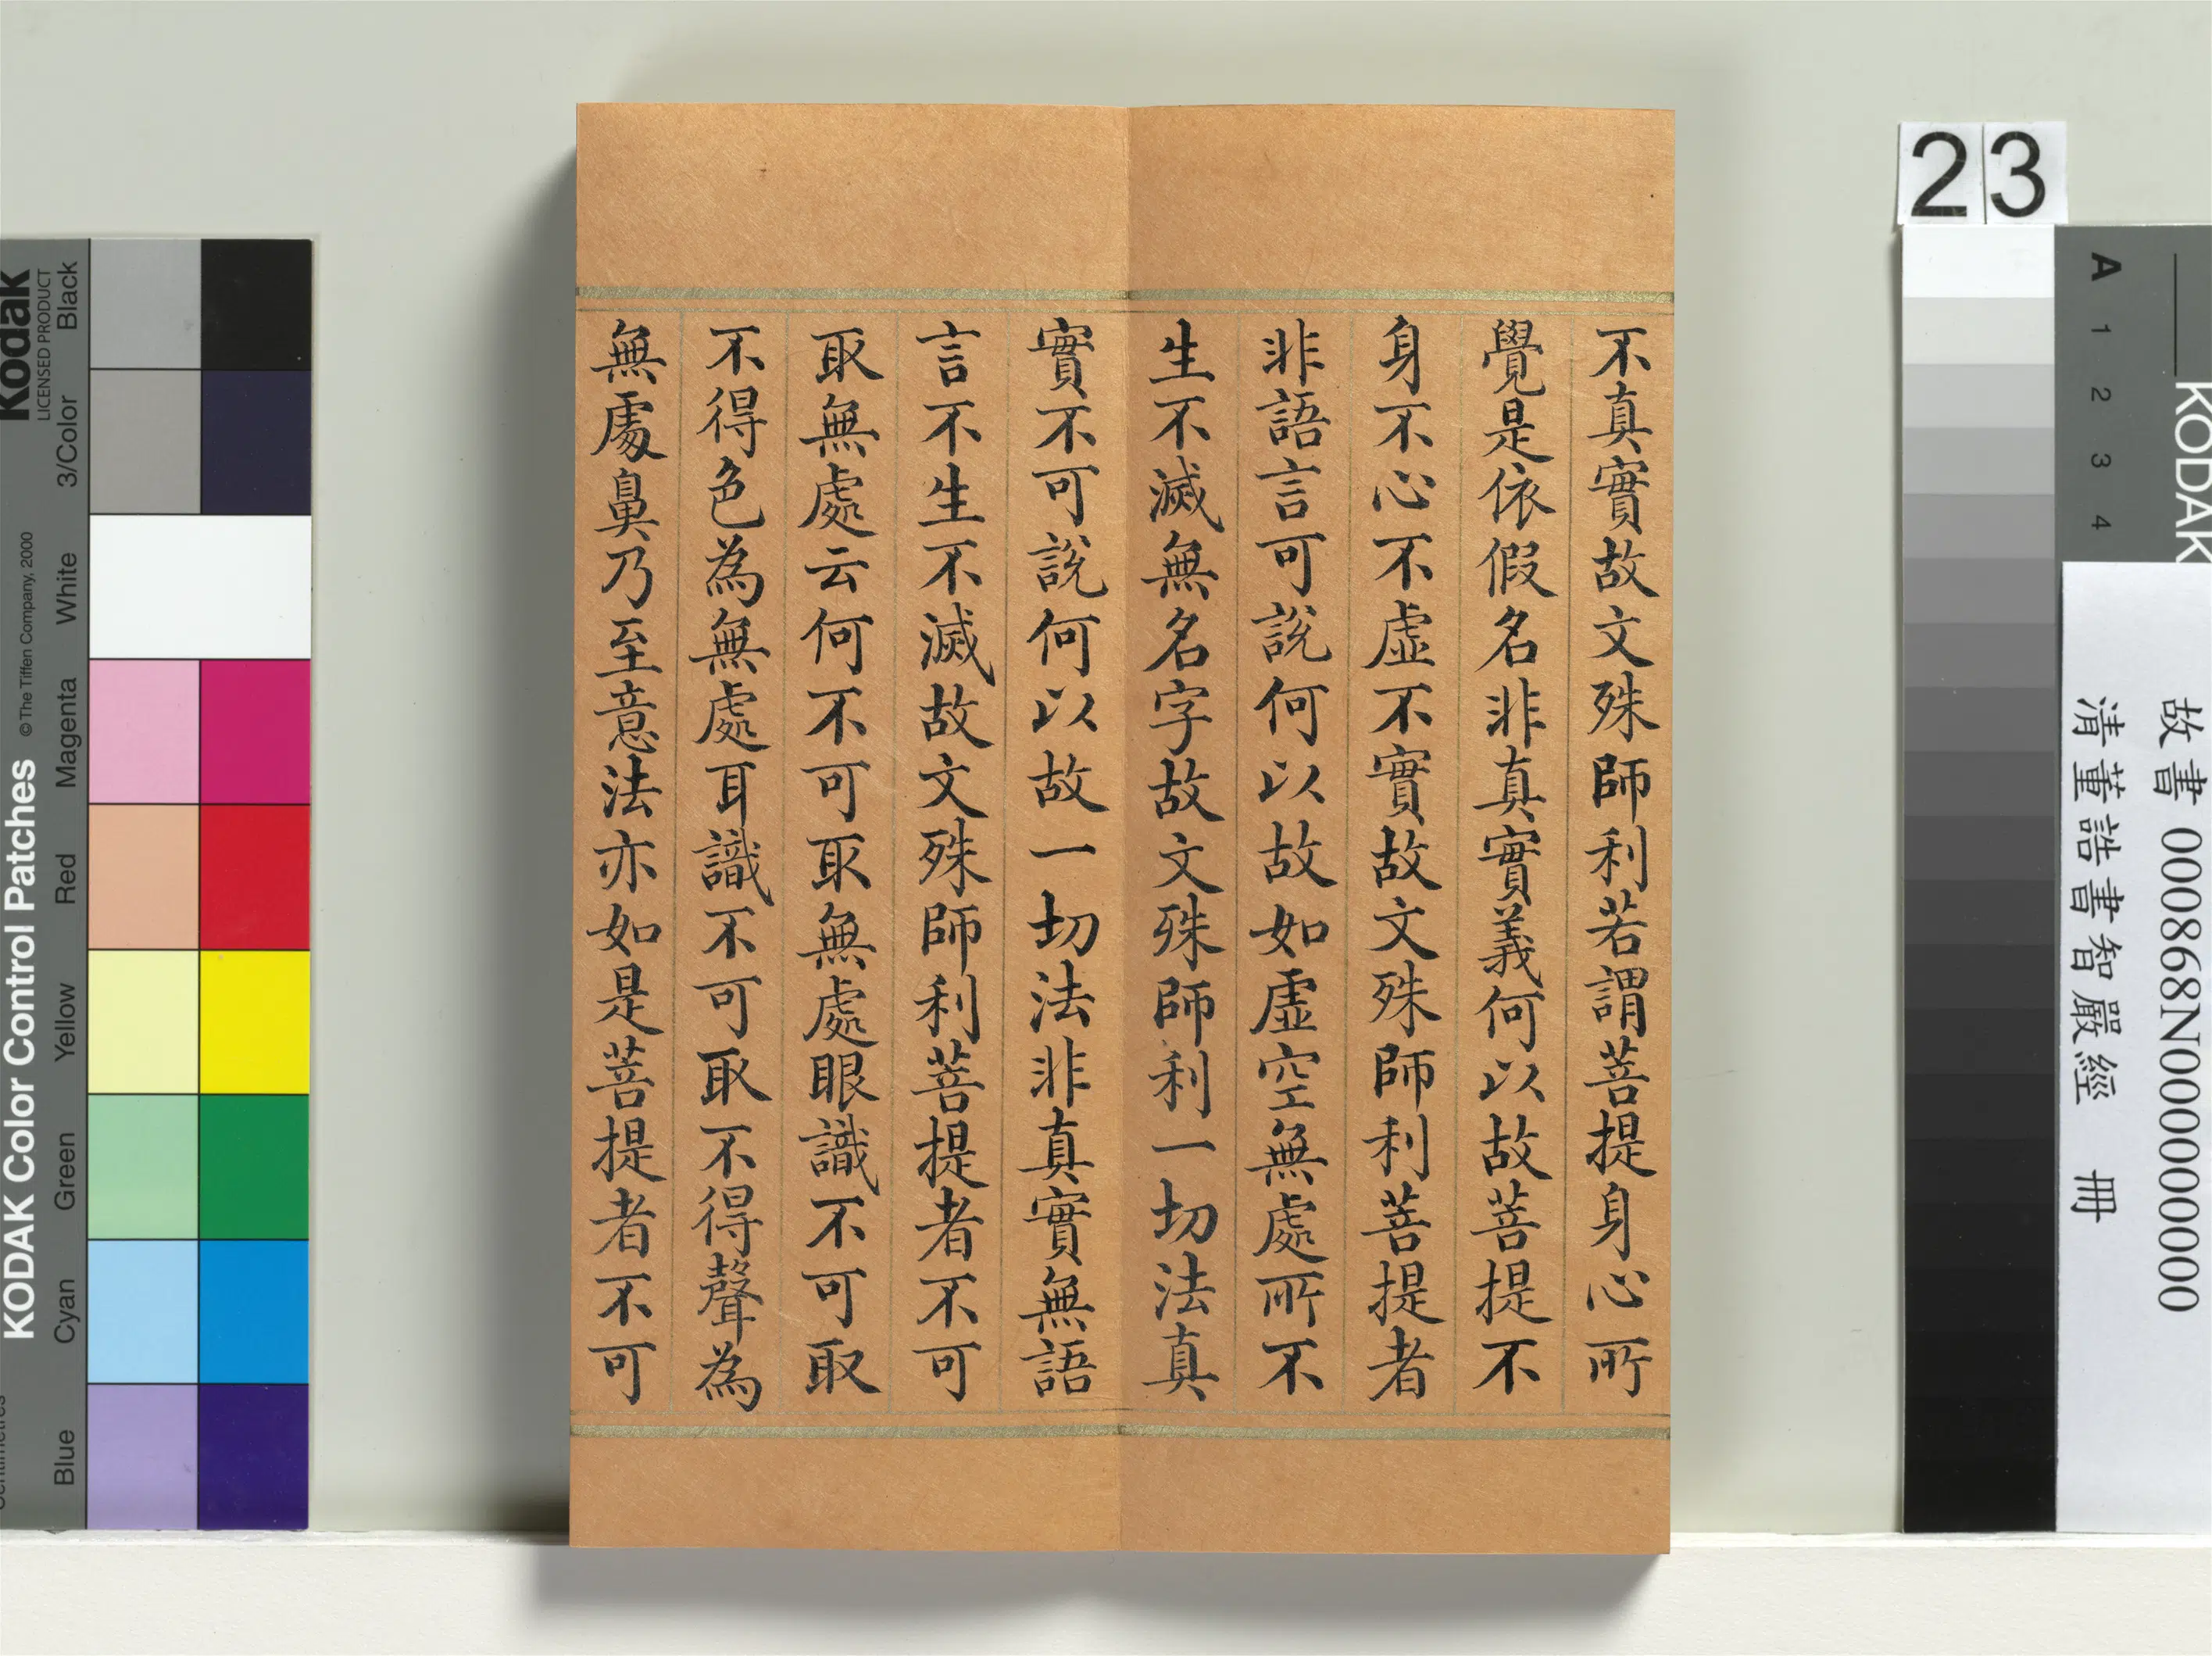 不真實故文殊師利若謂菩提身心所
覺是依假名非真實義何以故菩提不
身不心不虛不實故文殊師利菩提者
非語言可說何以故如虛空無處所不
生不滅無名字故文殊師利一切法真
實不可說何以故一切法非真實無語
言不生不滅故文殊師利菩提者不可
取無處云何不可取無處眼識不可取
不得色為無處耳識不可取不得聲為
無處鼻乃至意法亦如是菩提者不可
23
KODAK
A 1 2 3 4
故書 000868N000000000
清董誥書智嚴經 冊
Kodak
LICENSED PRODUCT
KODAK Color Control Patches ©The Tiffen Company, 2000
Blue Cyan Green Yellow Red Magenta White 3/Color Black